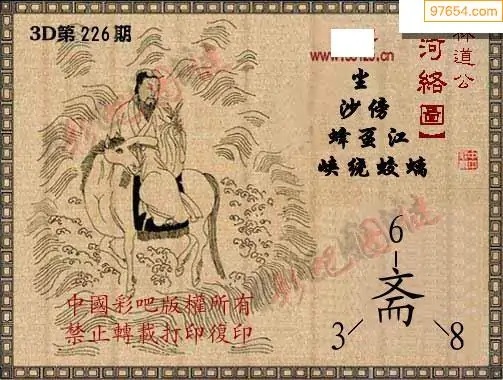 97654.com
3D第226期
道公
河絡圖】
尘
沙傍
蜂虿江
峡绕蛟螭
6
斋
3 8
中國彩吧版權所有
禁止轉載打印復印